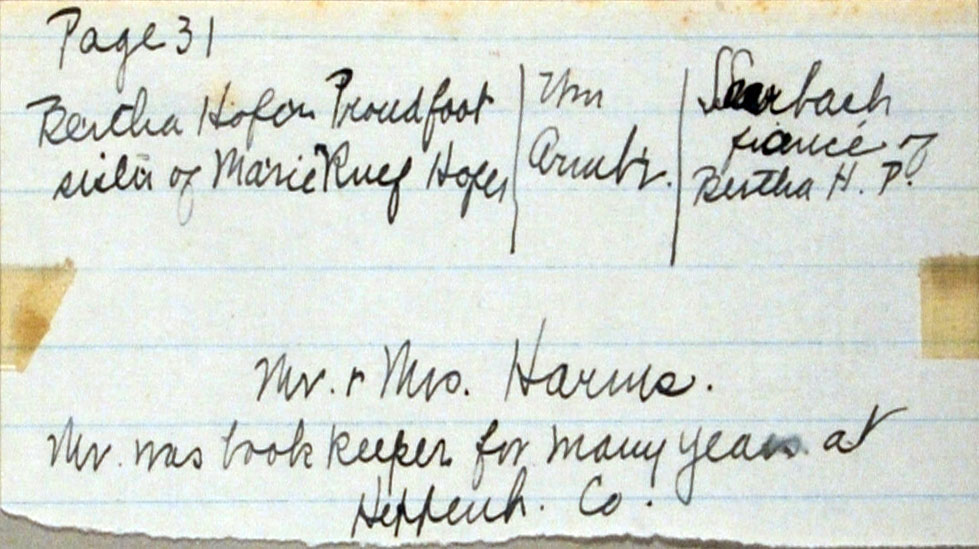 Page 31
Bertha Hofer Proudfoot
sister of Marie Ruef Hofer
Wm
Armbr.
bach
fiancé of
Bertha H. P.
Mr. & Mrs. Harms.
Mr. was bookkeeper for many years at
Heppenh. Co.